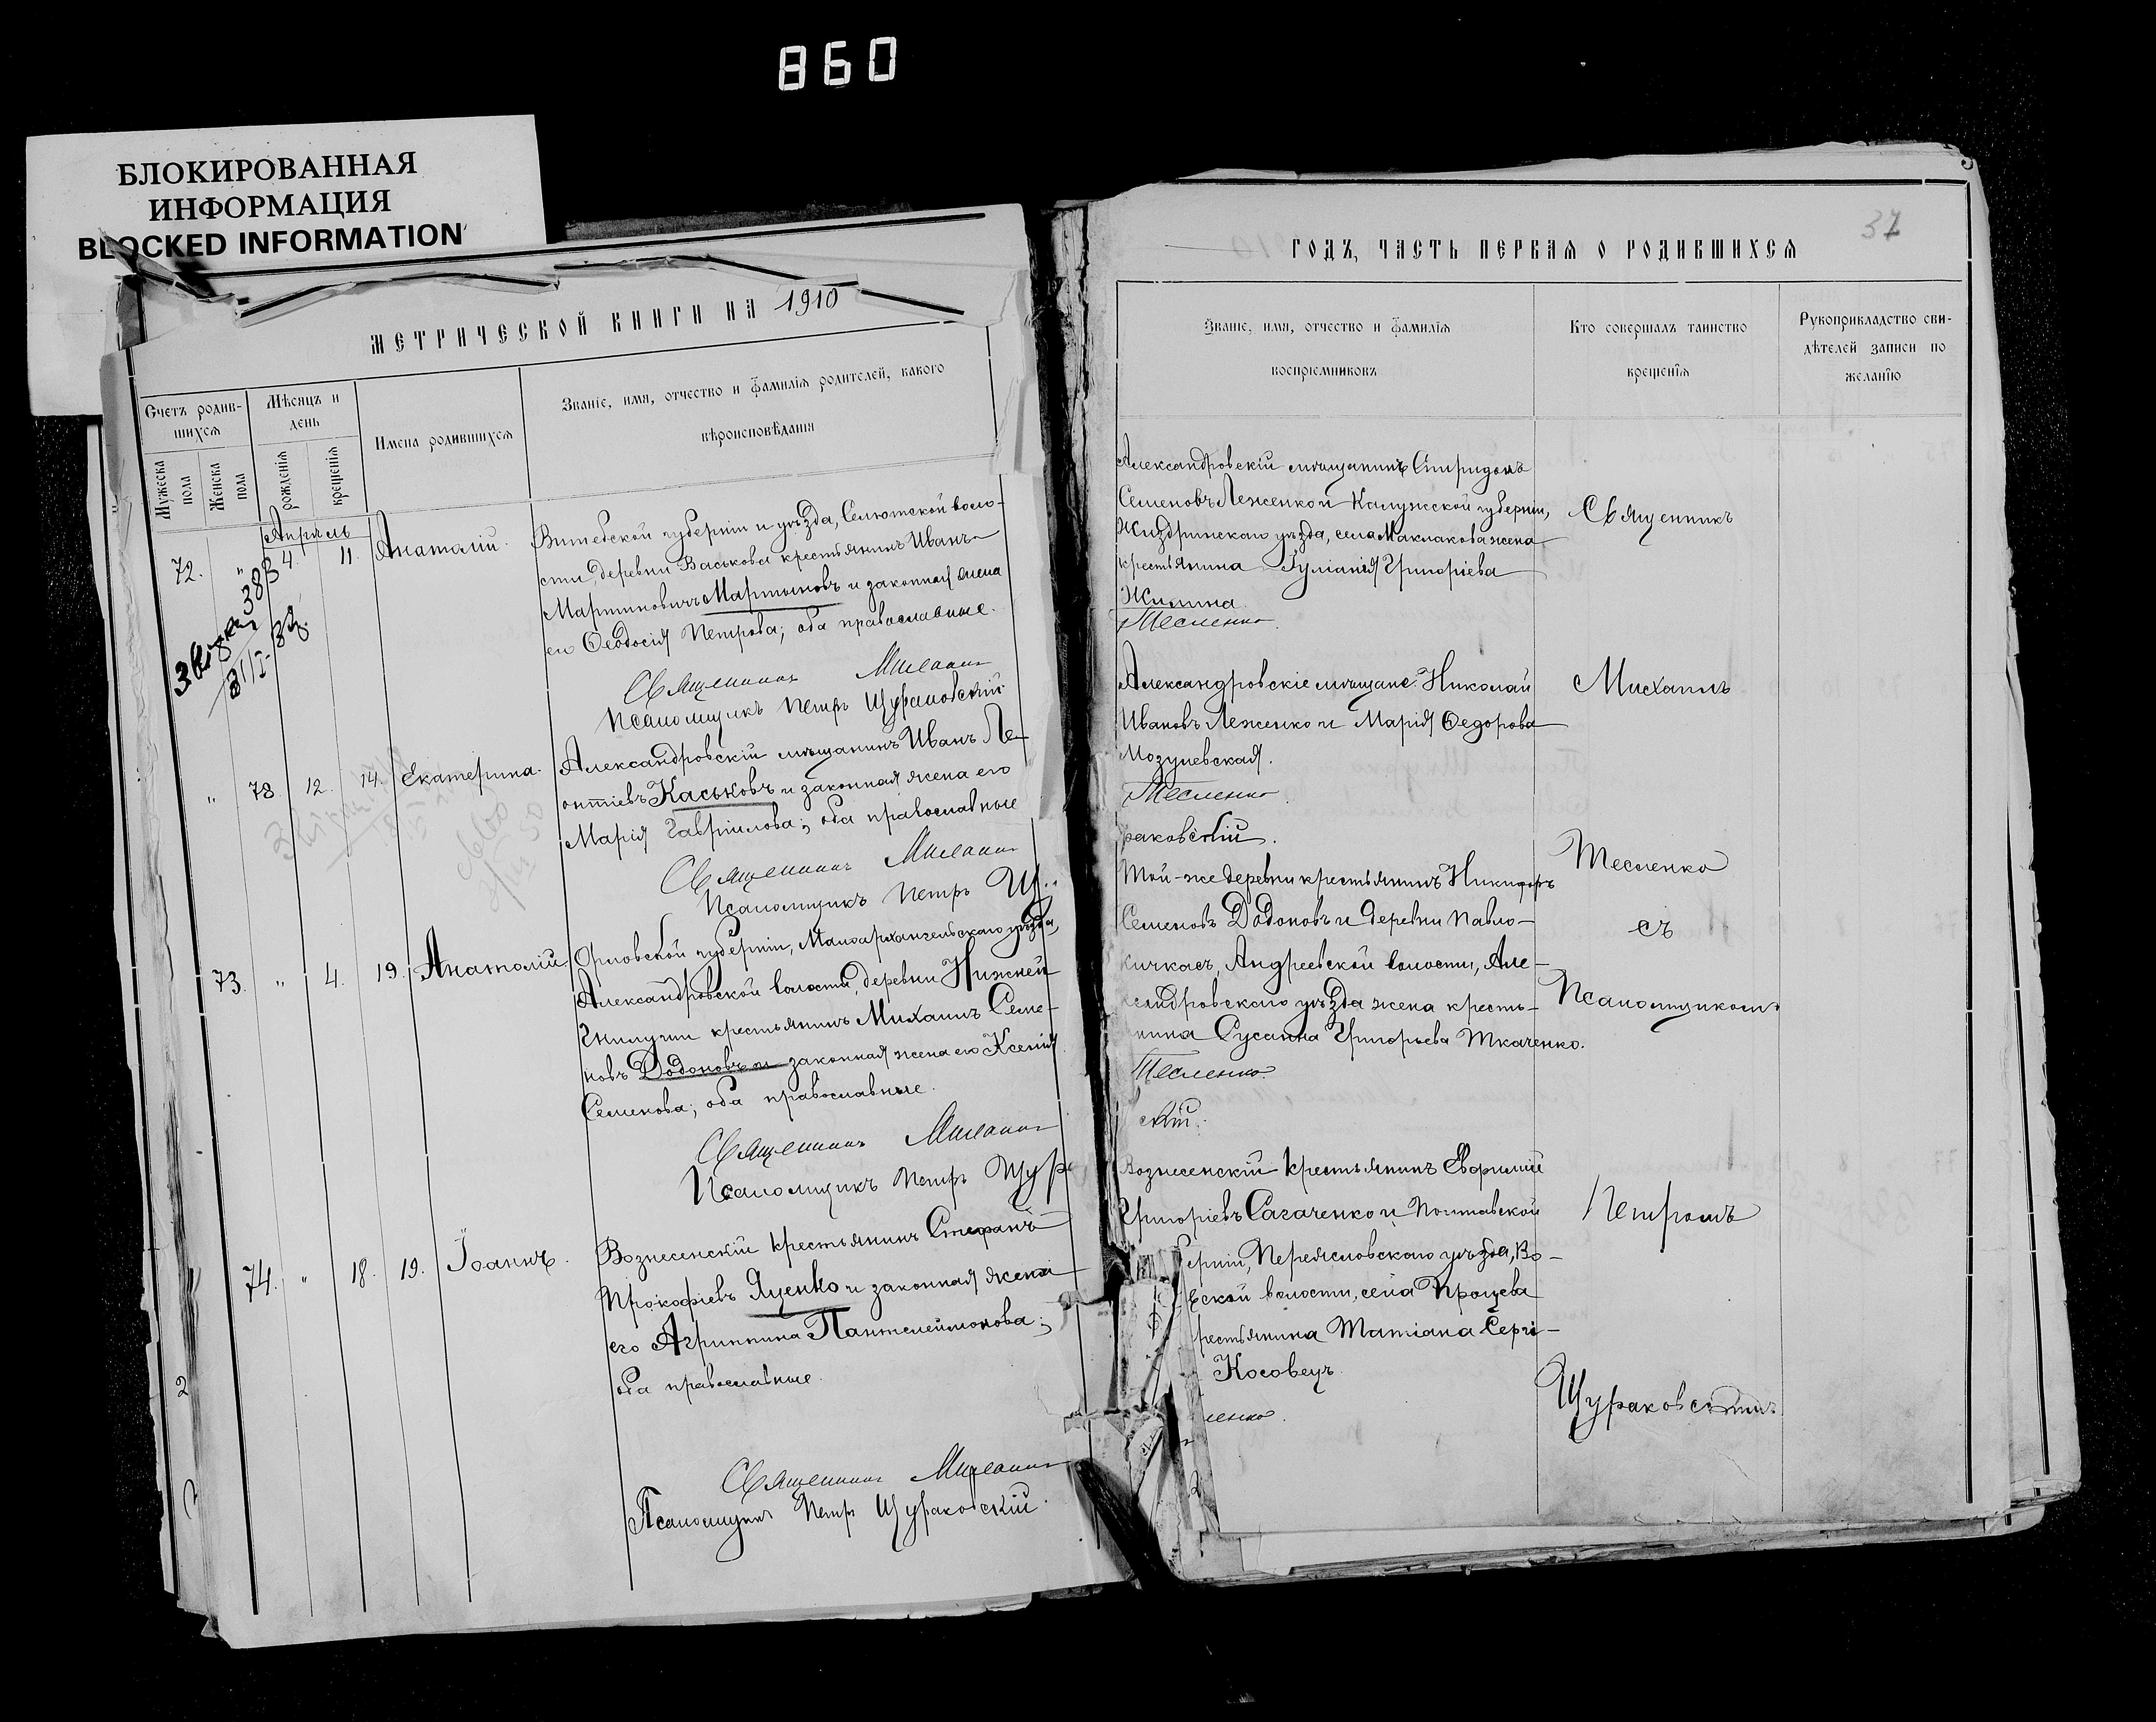 860
БЛОКИРОВАННАЯ
ИНФОРМАЦИЯ
BLOCKED INFORMATION
МЕТРИЧЕСКОЙ КНИГИ НА 1910
Счетъ родив-
шихся
Мѣсяцъ и
день
Имена родившихся
Званіе, имя, отчество и фамилія родителей, какого
вѣроисповѣданія
Мужеска
пола
Женска
пола
рожденія
крещенія
Апрѣль
72. " 4. 11. Анатолій.
Витебской губерніи и уѣзда, Селютской воло-
сти, деревни Васькова крестьянинъ Иванъ
Мартиновичъ Мартыновъ и законная жена
его Ѳеодосія Петрова; оба православные.
Священникъ Михаилъ
Псаломщикъ Петръ Щураковскій
" 78. 12. 14. Екатерина.
Александровскій мѣщанинъ Иванъ Ле-
онтіевъ Каськовъ и законная жена его
Марія Гавріилова; оба православные
Священникъ Михаилъ
Псаломщикъ Петръ Щу
73. " 4. 19. Анатолій.
Орловской губерніи, Малоархангельскаго уѣзда,
Александровской волости, деревни Нижней
Гнилуши крестьянинъ Михаилъ Семе-
новъ Додоновъ и законная жена его Ксенія
Семенова; оба православные.
Священникъ Михаилъ
Псаломщикъ Петръ Щурк
74. " 18. 19. Іоаннъ.
Вознесенскій крестьянинъ Стефанъ
Прокофіевъ Яценко и законная жена
его Агриппина Пантелеймонова;
оба православные.
Священникъ Михаилъ
Псаломщикъ Петръ Щураковскій.
37
ГОДЪ, ЧАСТЬ ПЕРВАЯ О РОДИВШИХСЯ
Званіе, имя, отчество и фамилія
воспріемниковъ
Кто совершалъ таинство
крещенія
Рукоприкладство сви-
дѣтелей записи по
желанію
Александровскій мѣщанинъ Спиридонъ
Семеновъ Леженко и Калужской губерніи,
Жиздринскаго уѣзда, села Маклакова жена
крестьянина Іуліанія Григоріева
Жилина.
Тесленко.
Александровскіе мѣщане: Николай
Ивановъ Леженко и Марія Ѳедорова
Мозулевская.
Тесленко.
раковскій.
Той-же деревни крестьянинъ Никифоръ
Семеновъ Додоновъ и деревни Павло-
кичкасъ, Андреевской волости, Але-
ксандровскаго уѣзда жена кресть-
янина Сусанна Григорьева Ткаченко.
Тесленко.
скій.
Вознесенскій крестьянинъ Евфимій
Григоріевъ Сагаченко и Полтавской
берніи, Переясловскаго уѣзда, Во-
ской волости, села Процева
рестьянина Татіана Сергі-
Косовецъ.
ленко.
Священникъ
Михаилъ
Тесленко
съ
Псаломщикомъ
Петромъ
Щураковскимъ.